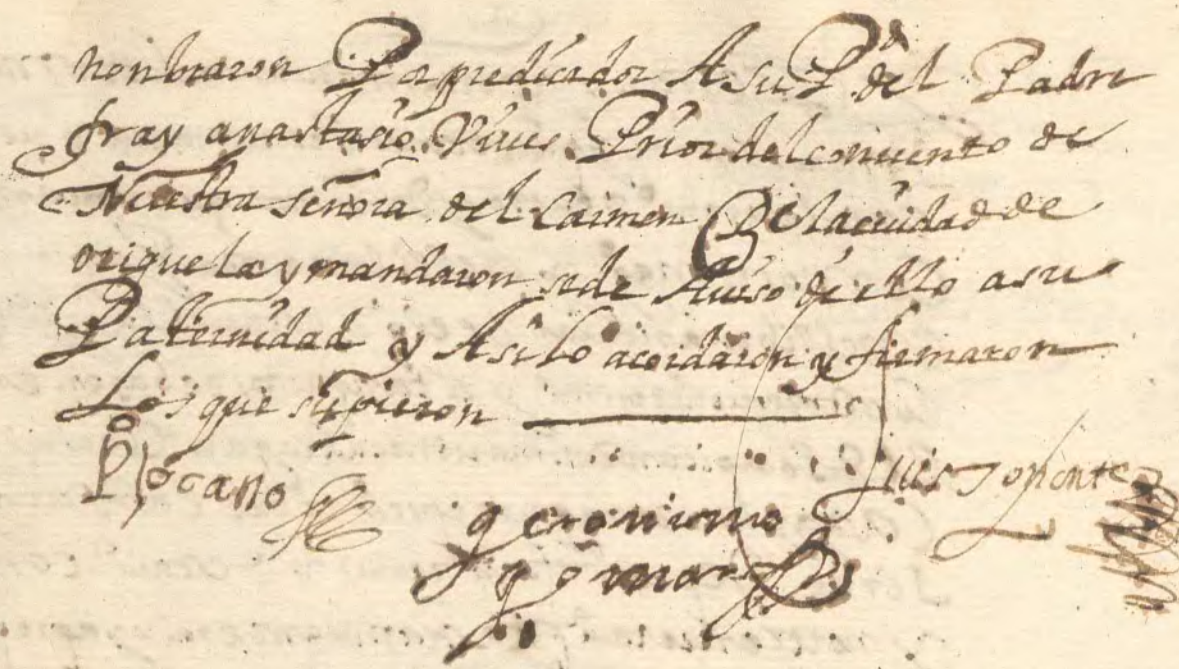 nonbraron Por predicador A su P.d del Padre
fray anastasio Viues Prior del conuento de
Nuestra señora del Carmen De la ciudad de
origuela y mandaron se de Auiso de ello a su
Paternidad y Asi lo acordaron y firmaron
Los que supieron
Po locano
Luis
geronimo
gomar